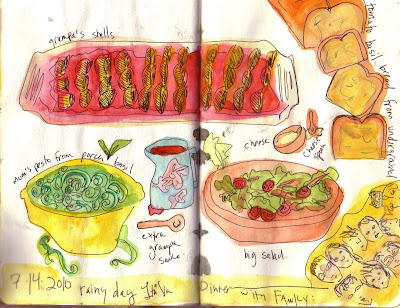 grampa's shells
tomato basil bread from understand
mom's pesto from porch basil
cheese
cheese spoon
extra
grampa
sauce
big salad
7/4.2010 rainy day Dinner with Family.